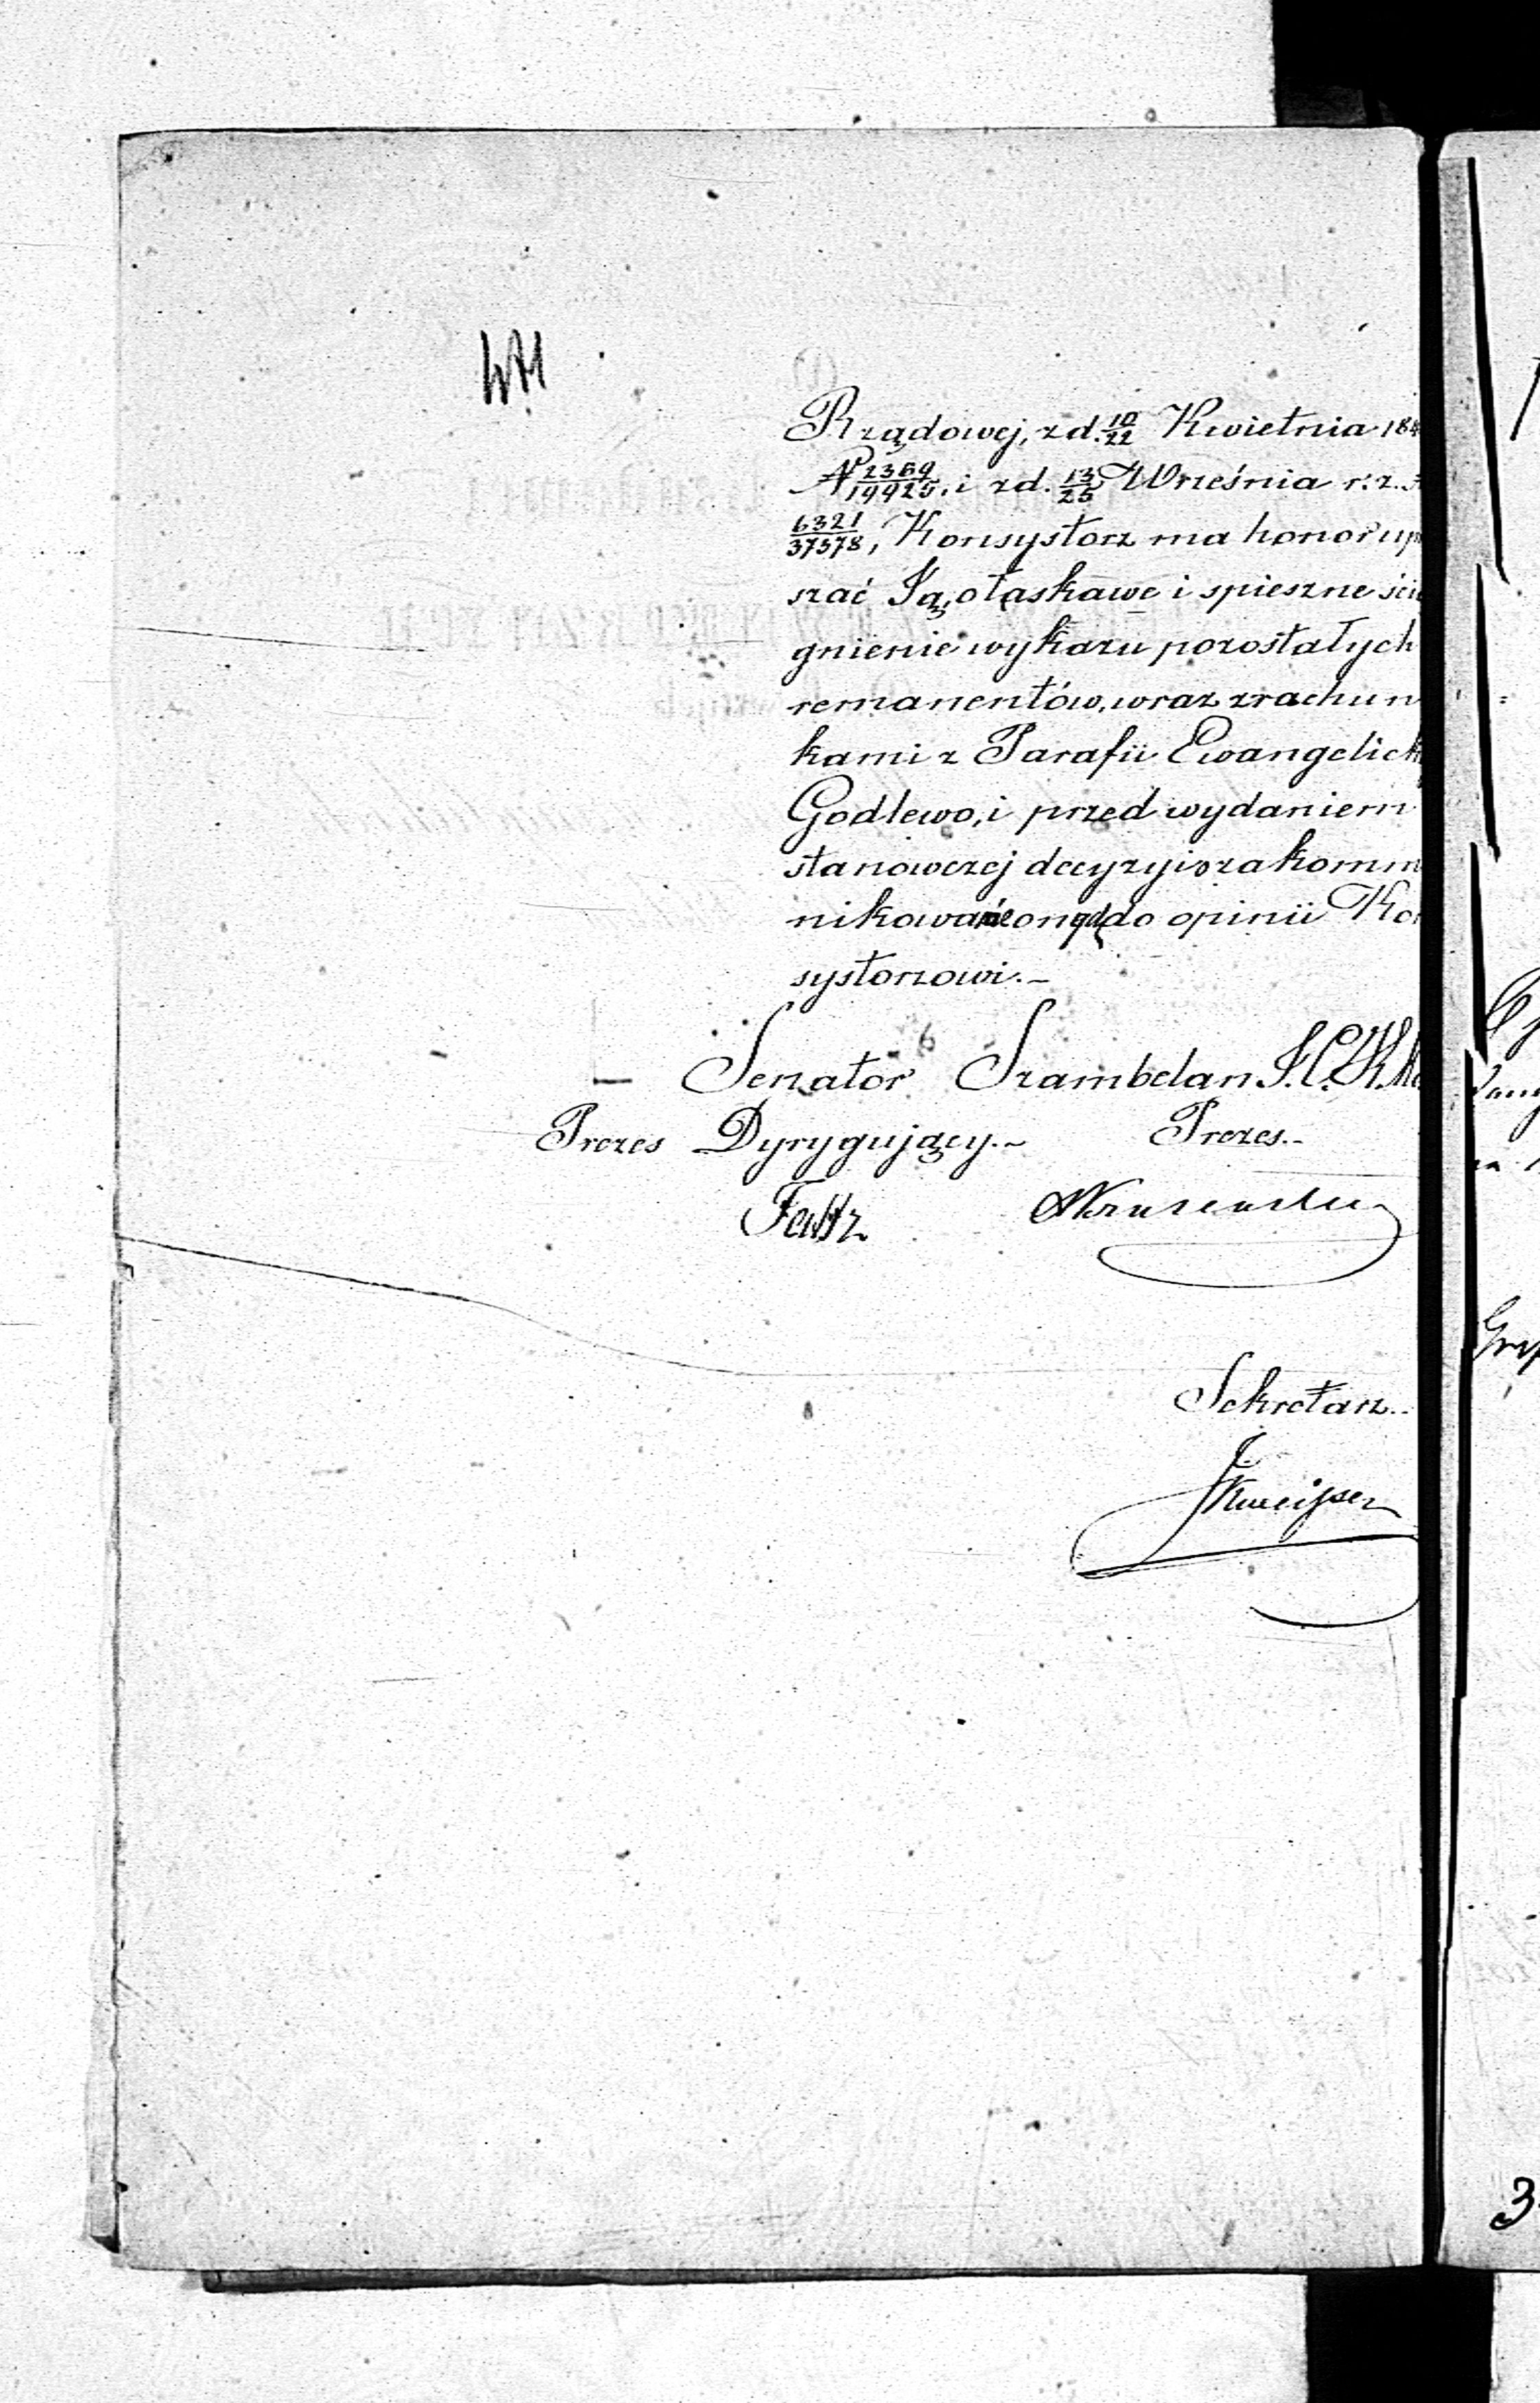 Rządowej, z d. 10/22 Kwietnia 184
N° 2369/19925, i z d. 13/25 Września r. z. N
6321/37578, Konsystorz ma honor upr
szać Ją, o łaskawe i spieszne ścią
gnienie wykazu pozostałych
remanentów, wraz z rachun
kami z Parafii Ewangelick
Godlewo, i przed wydaniem
stanowczej decyzyi o zakommu
nikowanie onych do opinii Kon
systorzowi.-
Senator Szambelan J.C.K.M
Prezes Dyrygujący.- Prezes.-
Sekretarz.-